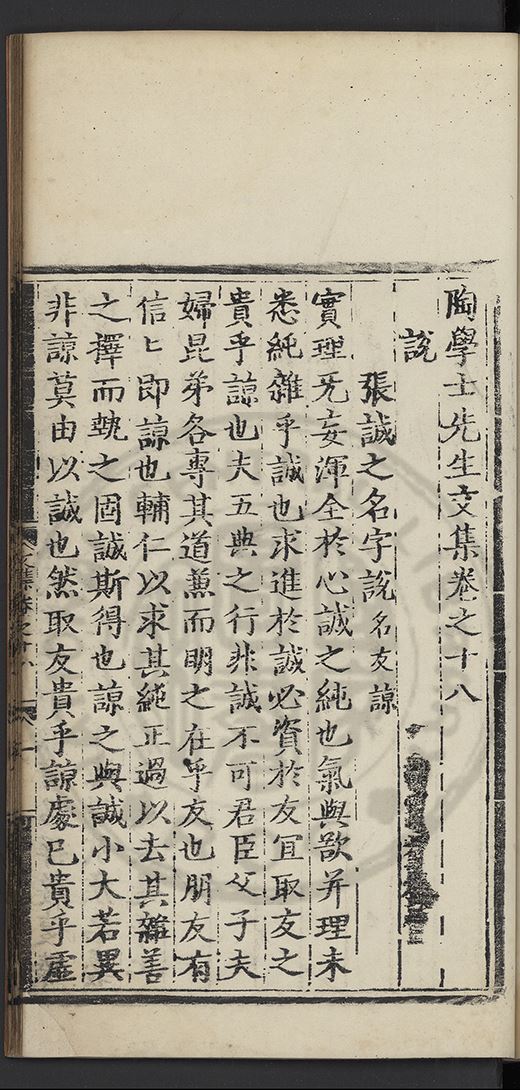 陶學士先生文集卷之十八
說
張誠之名字說名友諒
實理旡妄渾全於心誠之純也氣與欲并理未
悉純雜乎誠也求進於誠必資於友宜取友之
貴乎諒也夫五典之行非誠不可君臣父子夫
婦昆弟各專其道兼而明之在乎友也朋友有
信〻即諒也輔仁以求其純正過以去其雜善
之擇而執之固誠斯得也諒之與誠小大若異
非諒莫由以誠也然取友貴乎諒處已貴乎虛
文集卷之十八